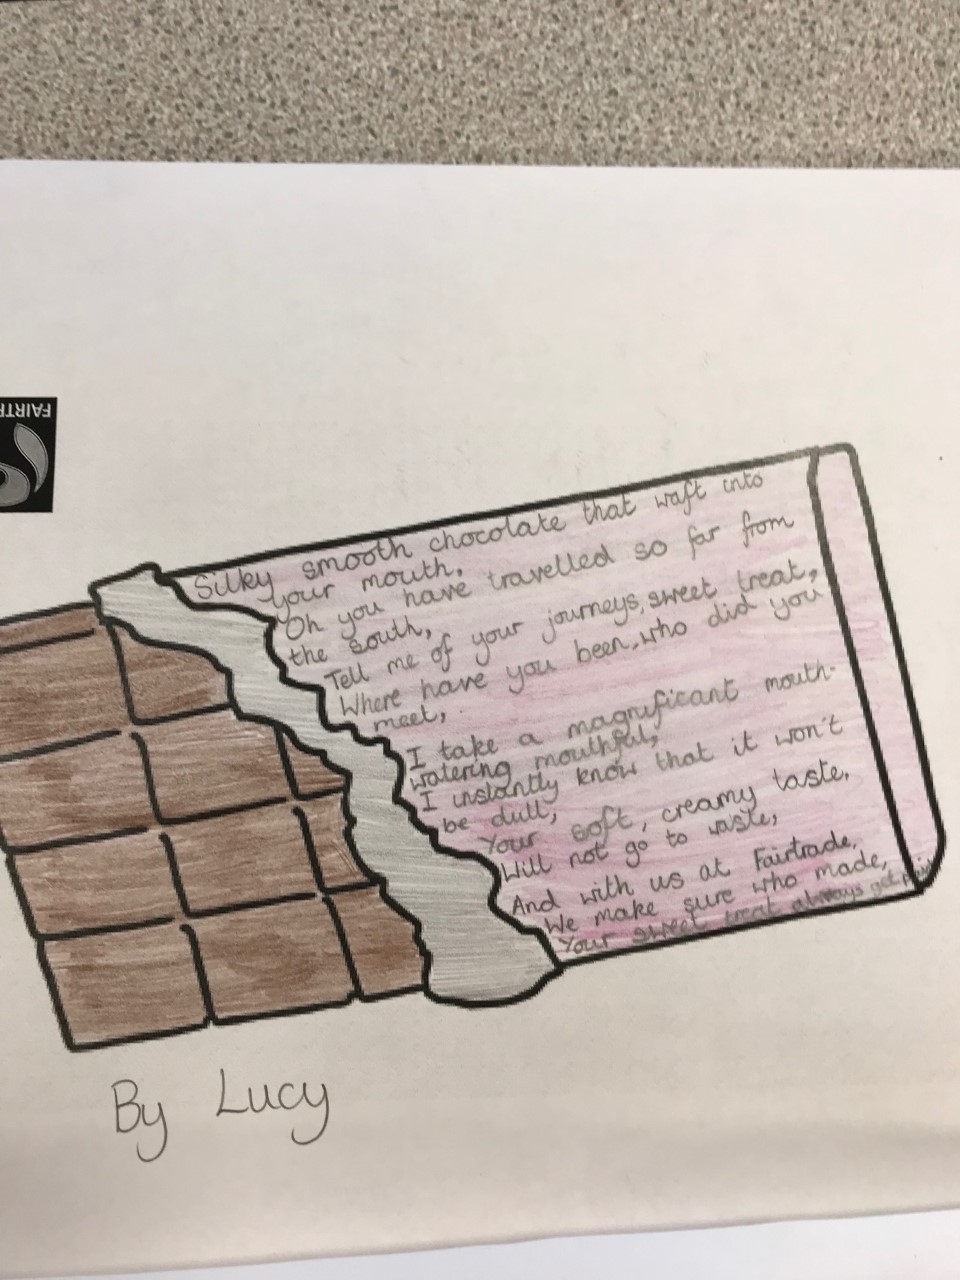 FAIRTR
Silky smooth chocolate that waft into
your mouth,
Oh you have travelled so far from
the south,
Tell me of your journeys, sweet treat,
Where have you been, who did you
meet,
I take a magnificant mouth-
watering mouthful,
I instantly know that it won't
be dull,
Your soft, creamy taste,
Will not go to waste,
And with us at Fairtrade,
We make sure who made,
Your sweet treat always get
By Lucy